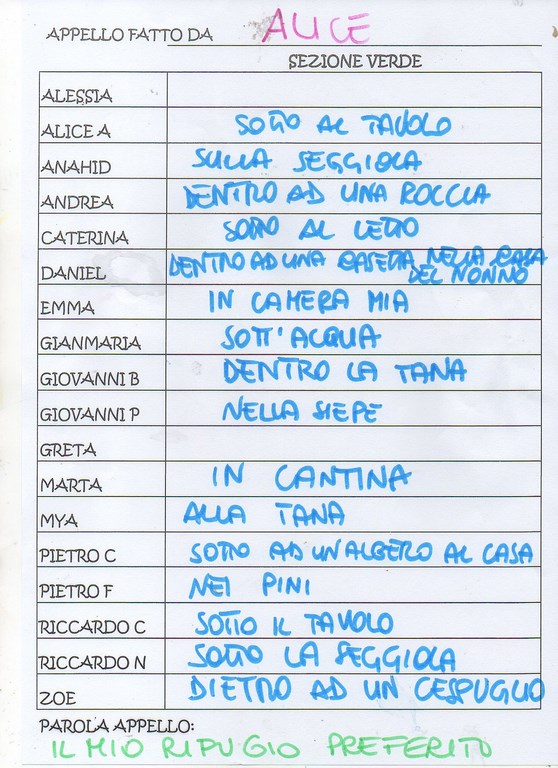 APPELLO FATTO DA ALICE
SEZIONE VERDE
ALESSIA
ALICE A SOTTO AL TAVOLO
ANAHID SULLA SEGGIOLA
ANDREA DENTRO AD UNA ROCCIA
CATERINA SOTTO AL LETTO
DANIEL DENTRO AD UNA CASETTA NELLA CASA
DEL NONNO
EMMA IN CAMERA MIA
GIANMARIA SOTT'ACQUA
GIOVANNI B DENTRO LA TANA
GIOVANNI P NELLA SIEPE
GRETA
MARTA IN CANTINA
MYA ALLA TANA
PIETRO C SOTTO AD UN ALBERO AL CASA
PIETRO F NEI PINI
RICCARDO C SOTTO IL TAVOLO
RICCARDO N SOTTO LA SEGGIOLA
ZOE DIETRO AD UN CESPUGLIO
PAROLA APPELLO:
IL MIO RIFUGIO PREFERITO